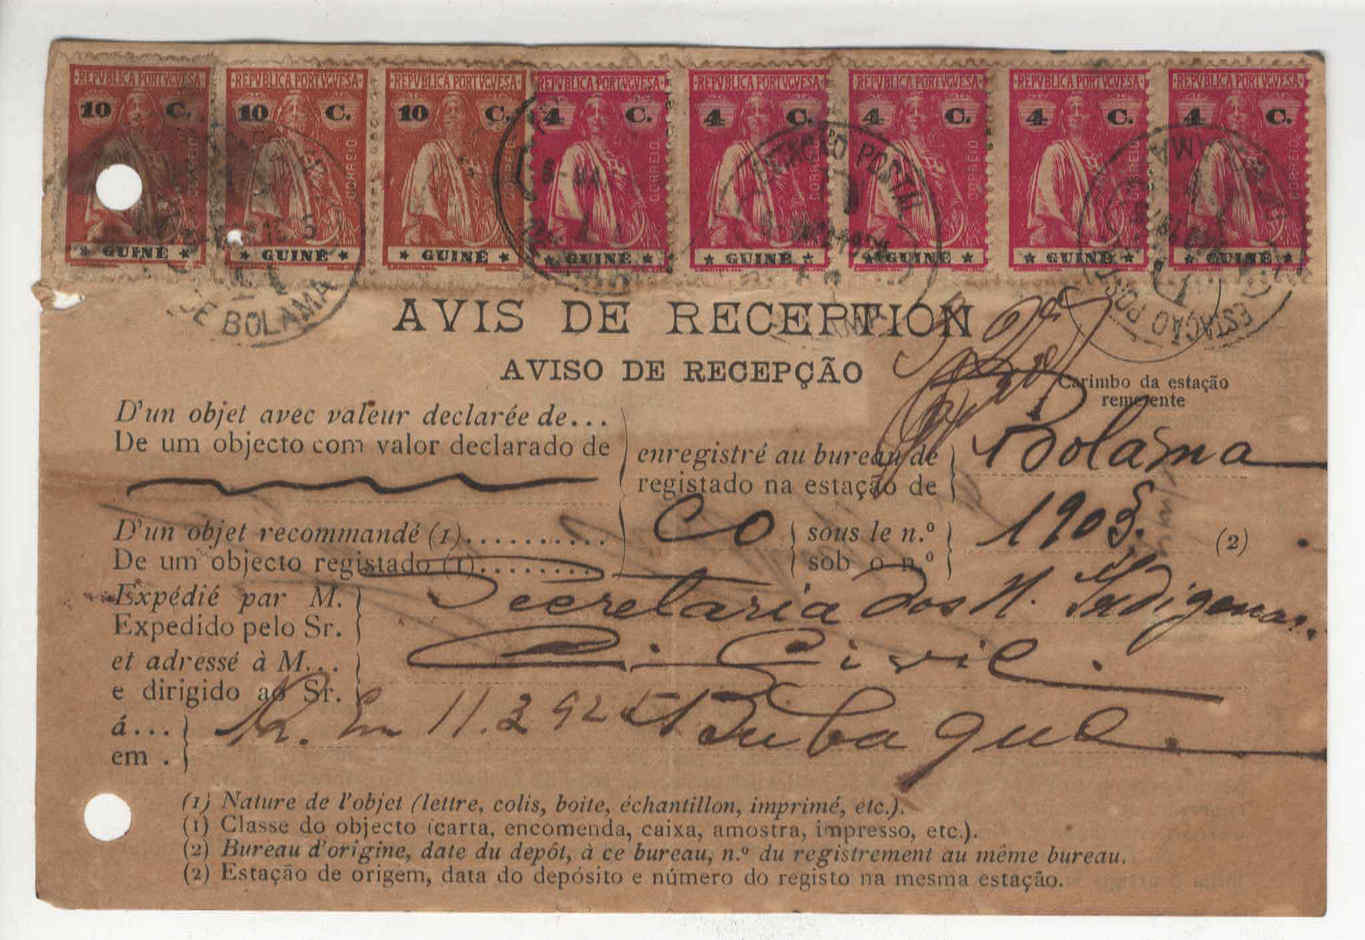 REPVBLICA PORTVGVESA REPVBLICA PORTVGVESA REPVBLICA PORTVGVESA REPVBLICA PORTVGVESA REPVBLICA PORTVGVESA REPVBLICA PORTVGVESA REPVBLICA PORTVGVESA REPVBLICA PORTVGVESA
10 C. 10 C. 10 C. 4 C. 4 C. 4 C. 4 C. 4 C.
CORREIO CORREIO CORREIO CORREIO CORREIO CORREIO CORREIO CORREIO
GUINÉ GUINÉ GUINÉ GUINÉ GUINÉ GUINÉ GUINÉ GUINÉ
DE BOLAMA
ESTAÇÃO POSTAL
ESTAÇÃO POSTAL
AVIS DE RECEPTION
AVISO DE RECEPÇÃO
Carimbo da estação
remetente
D'un objet avec valeur declarée de...
De um objecto com valor declarado de
enregistré au bureau de
registado na estação de
Bolama
D'un objet recommandé (1)..........
De um objecto registado (1)........
CO
sous le n.º
sob o n.º
1903.
(2)
Expédié par M.
Expedido pelo Sr.
Secretaria dos N. Indigenas
et adressé à M...
e dirigido ao Sr.
C. Civil.
á...
em .
11.3.925
Bubaque.
(1) Nature de l'objet (lettre, colis, boite, échantillon, imprimé, etc.).
(1) Classe do objecto (carta, encomenda, caixa, amostra, impresso, etc.).
(2) Bureau d'origine, date du depôt, à ce bureau, n.º du registrement au même bureau.
(2) Estação de origem, data do depósito e número do registo na mesma estação.